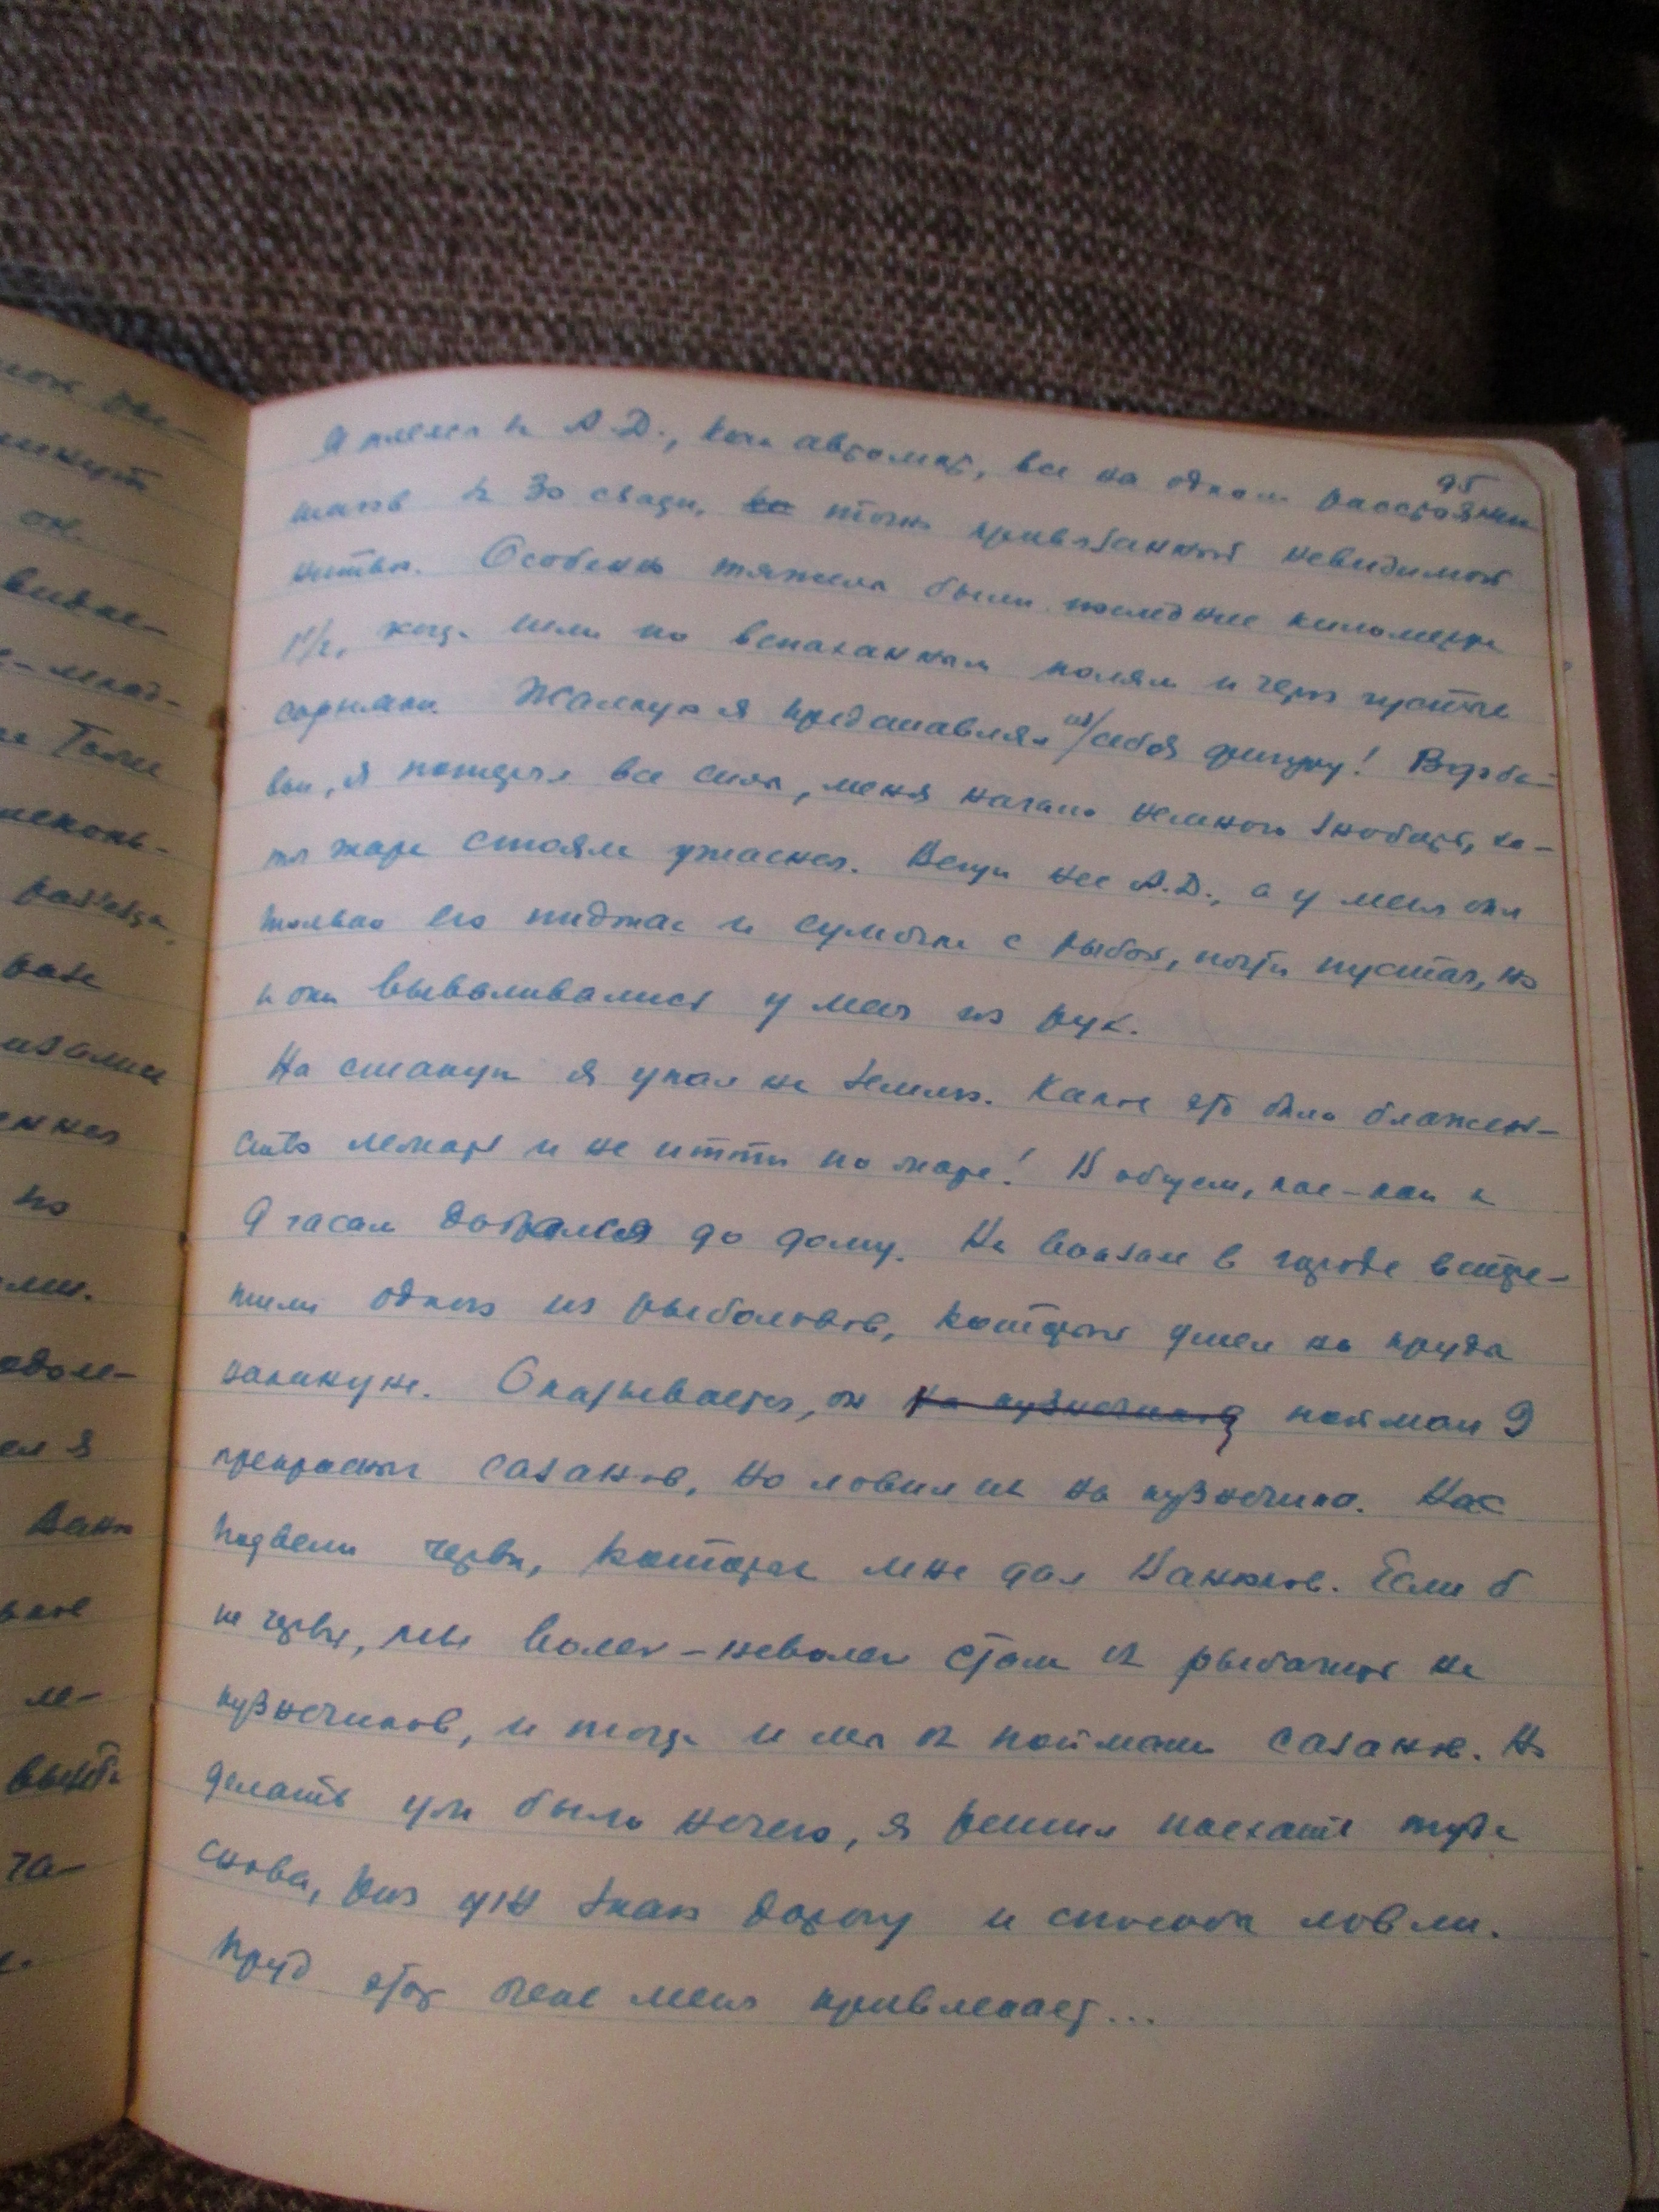 95
Я плелся за А.Д., как автомат, все на одном расстоянии
шагов в 30 сзади, точно привязанный невидимой
нитью. Особенно тяжелы были последние километра
1½, когда шли по вспаханным полям и через густые
сорняки. Жалкую я представлял из себя фигуру!
я потерял все силы, меня начало немного знобить, хо-
тя жара стояла ужасная. Вещи нес А.Д., а у меня был
только его пиджак и сумочка с рыбой, почти пустая, но
и они вываливались у меня из рук.
На станции я упал на землю. Какое это было блажен-
ство лежать и не идти по жаре! В общем, кое-как к
9 часам добрался до дому. На вокзале в городе встре-
тили одного из рыболовов, который ушел на пруда
накануне. Оказывается, он на кузнечика поймал 9
прекрасных сазанов, но ловил их на кузнечика. Нас
подвели черви, которых мне дал Ванюков. Если б
не черви, мы волей-неволей стали бы рыбачить на
кузнечиков, и тогда и мы бы поймали сазанов. Но
делать уж было нечего, я решил поехать туда
снова, раз уж знаю дорогу и способы ловли.
Пруд этот очень меня привлекает...
он.
видне-
Толи
разъезда,
но
одоле-
Ваню
ле-
ча-